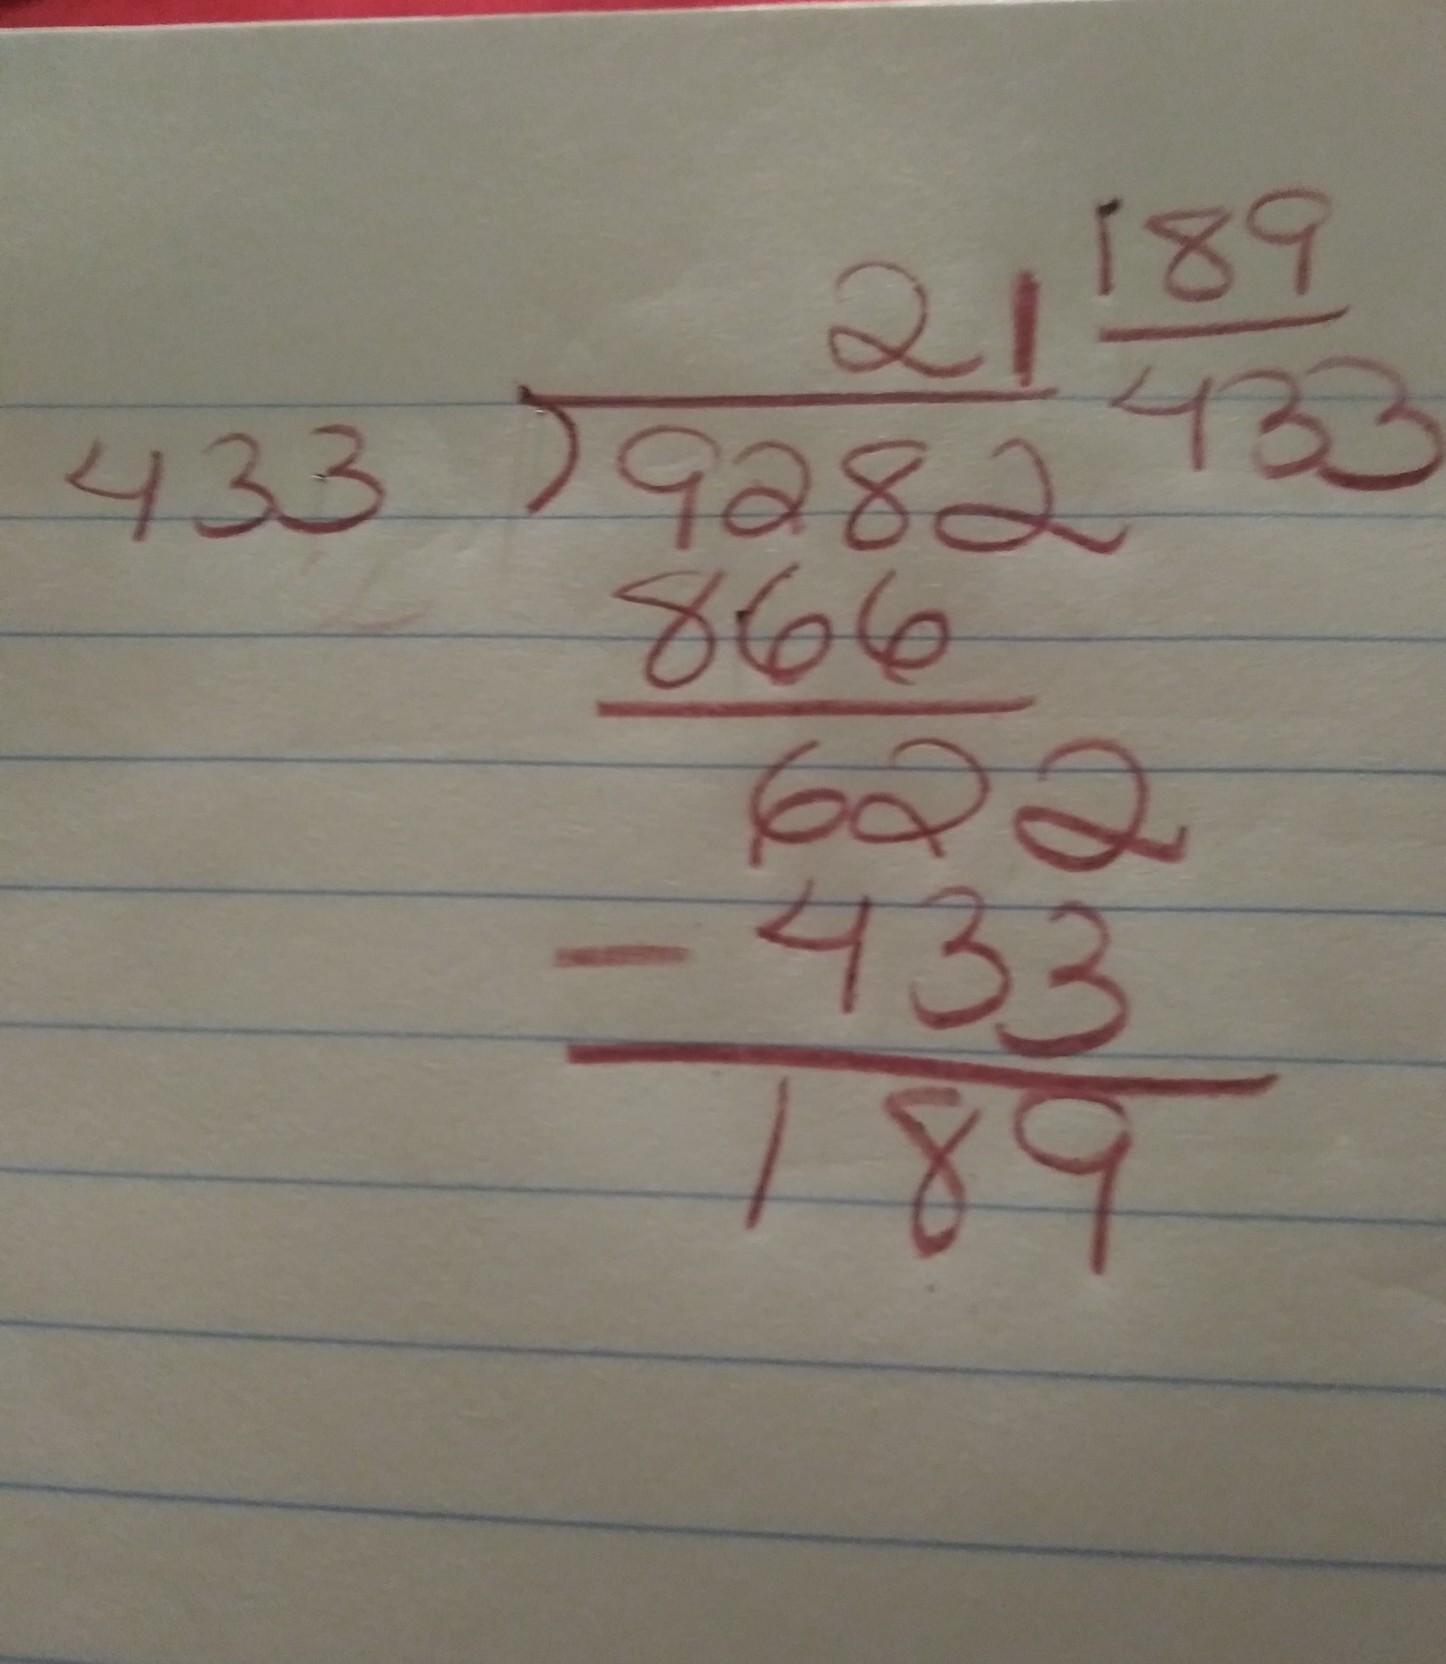 21 189/433
433 ) 9282
866
622
- 433
189